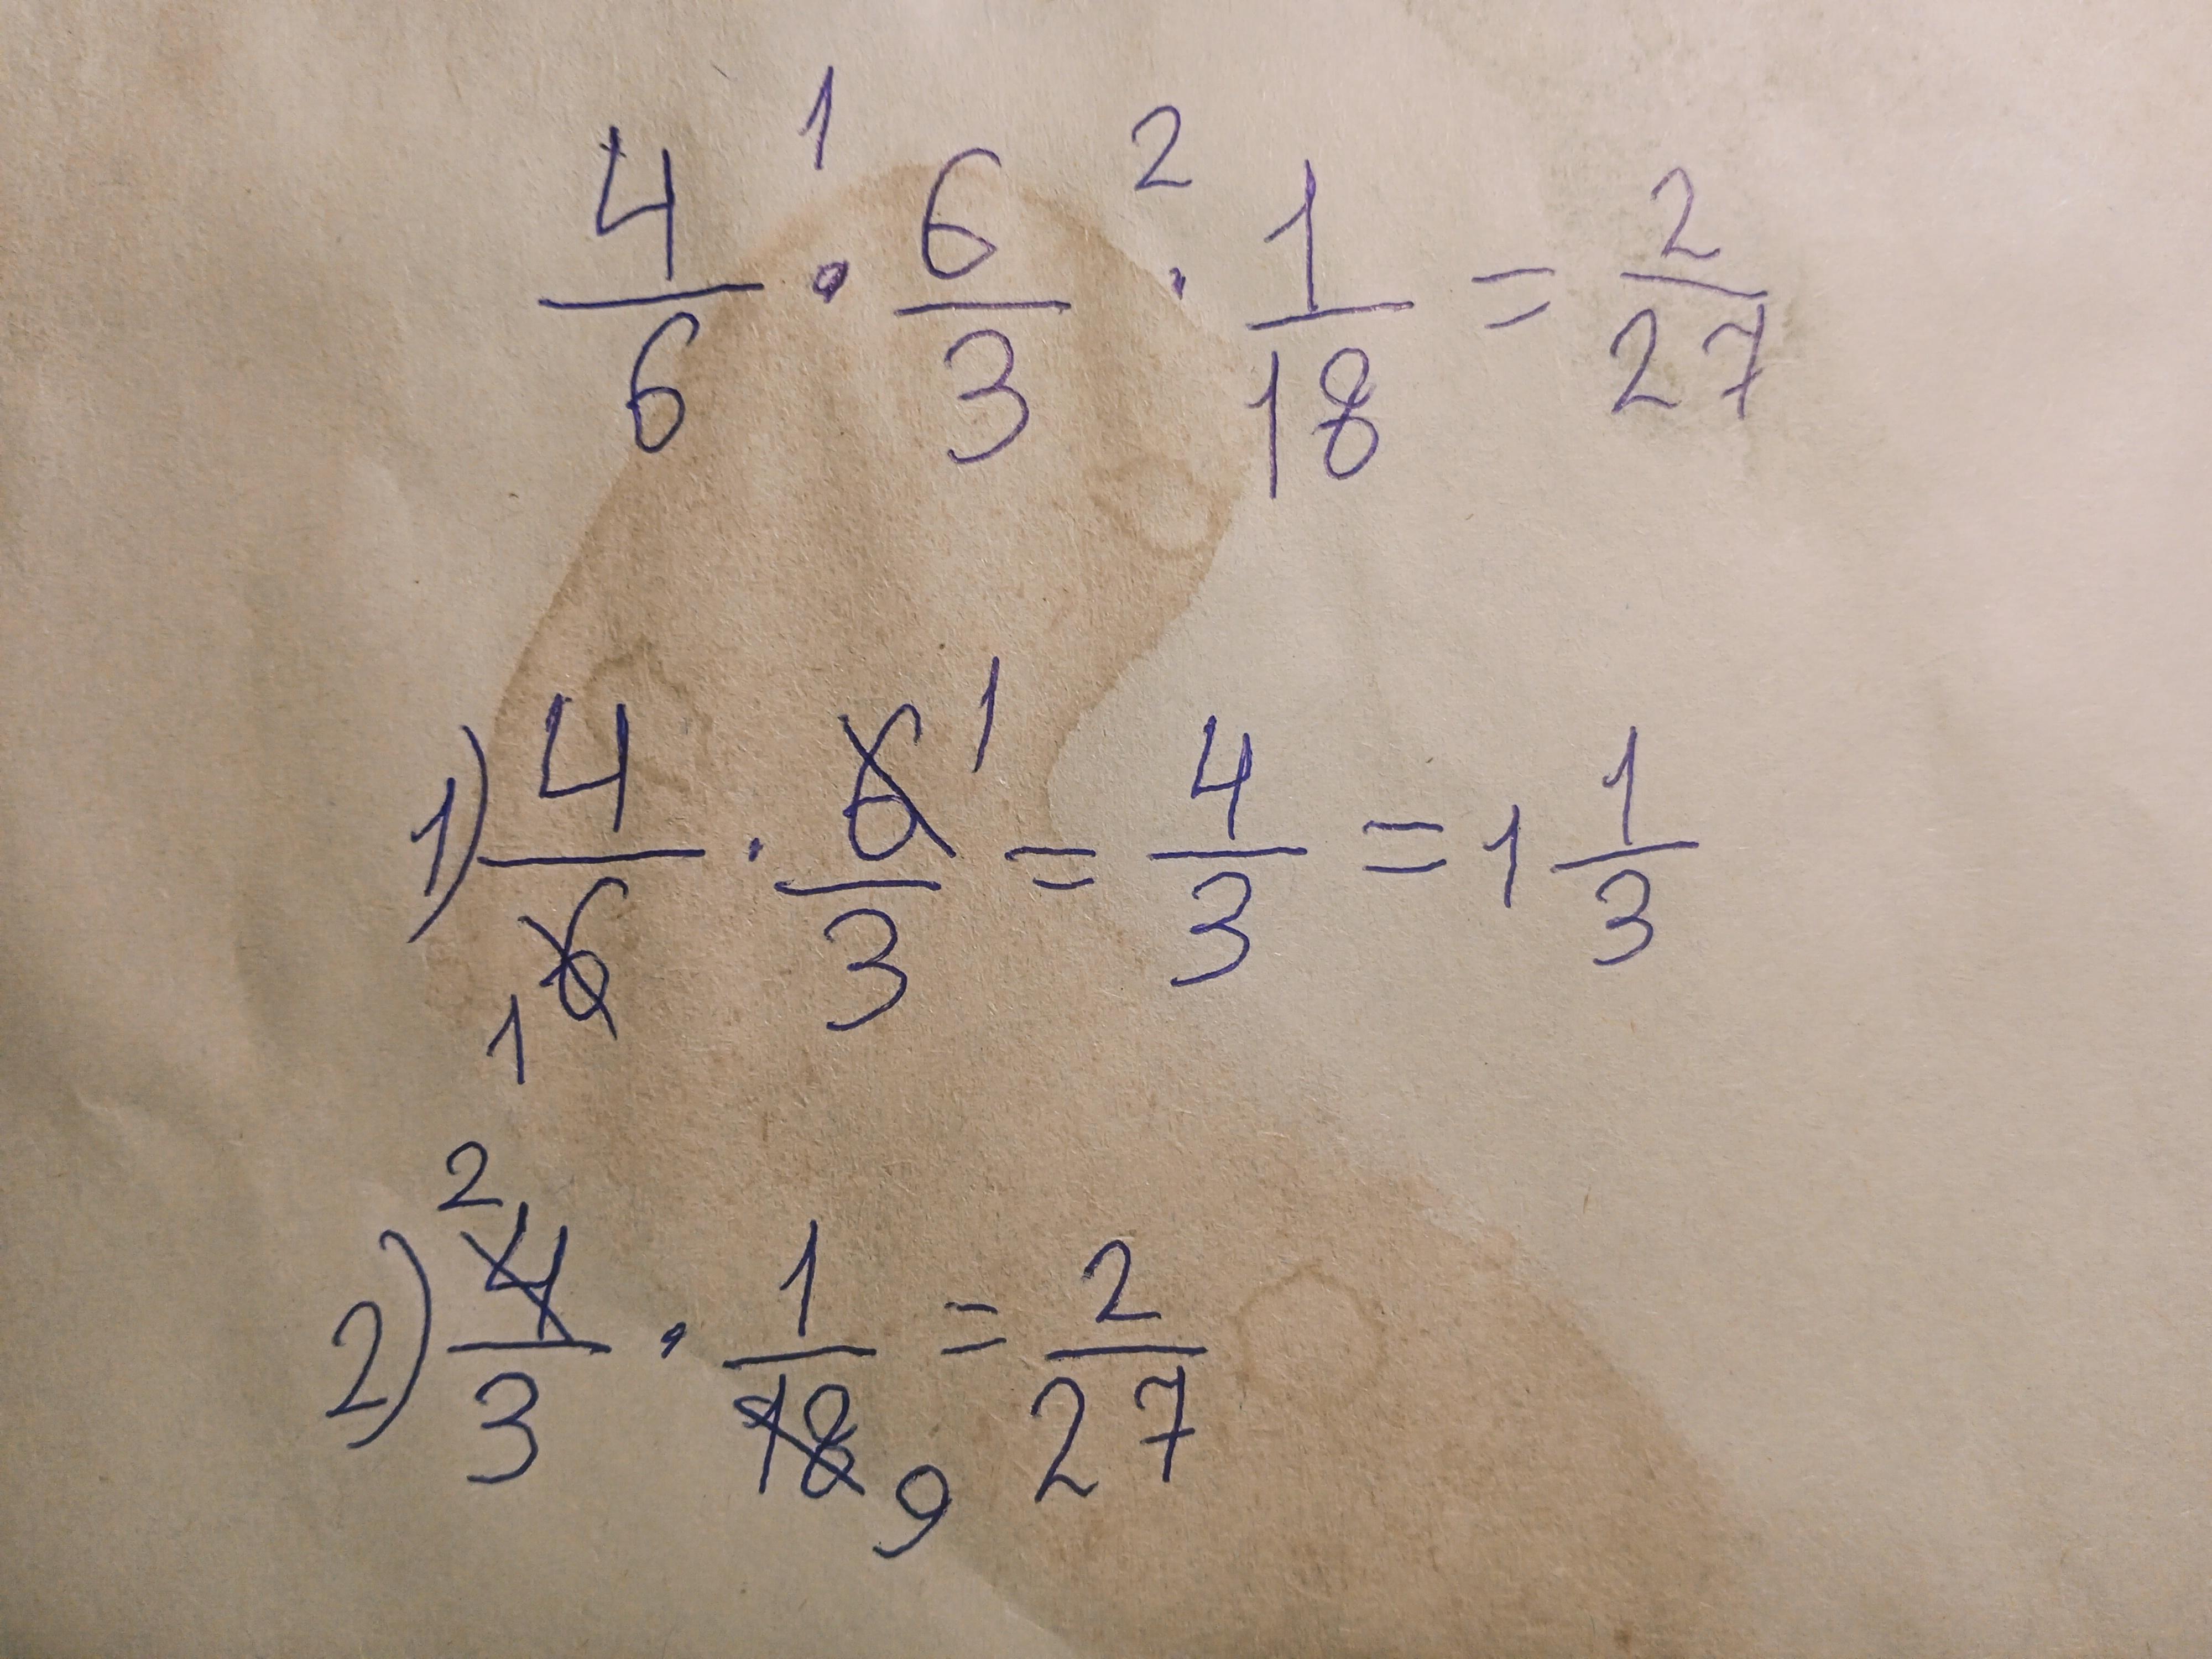 4/6 ·¹ 6/3 ·² 1/18 = 2/27
1) 4/6 1 · 6/3 1 = 4/3 = 1 1/3
2) 2 4/3 · 1/18 9 = 2/27